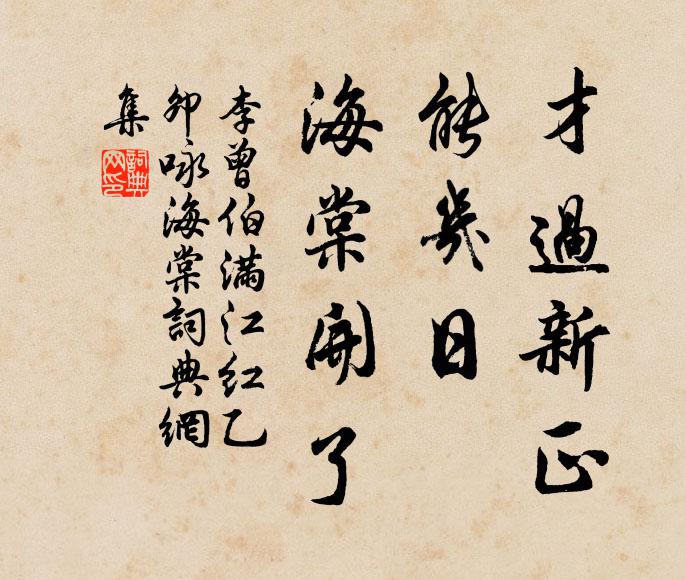 才過新正
能幾日
海棠開了
李曾伯滿江紅乙
卯咏海棠詞典網
集
詞典
网印